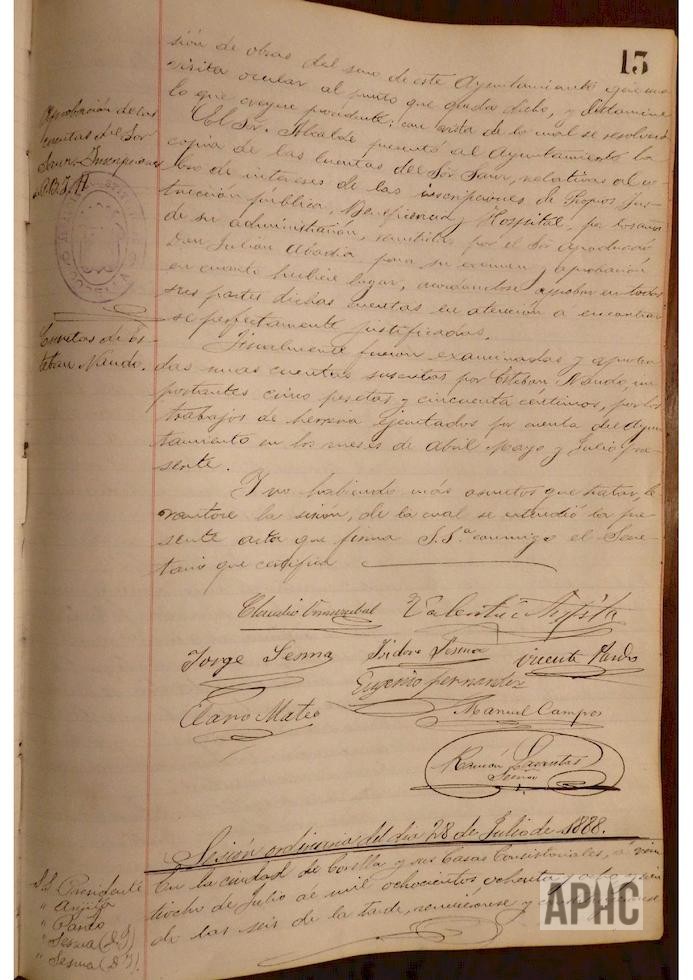 15
sión de obras del seno de este Ayuntamiento gire una
visita ocular al punto que queda dicho, y dictamine
lo que creyere procedente; con vista de lo cual se resolverá
Aprobación de las
cuentas del Sor
Inscripciones
El Sor. Alcalde presentó al Ayuntamiento la
copia de las cuentas del Sor relativas al co-
bro de intereses de las inscripciones de Propios, Ins-
trucción pública, Beneficencia y Hospital, por los años
de su administración, remitidas por el Sor Apoderado
Don Julián Abadia para su examen y aprobación
en cuanto hubiere lugar, acordandose aprobar en todas
sus partes dichas cuentas en atención a encontrar-
se perfectamente justificadas.
Cuentas de Es-
teban
Igualmente fueron examinadas y aproba-
das unas cuentas suscritas por Esteban im-
portantes cinco pesetas y cincuenta centimos, por los
trabajos de herreria ejecutados por cuenta del Ayun-
tamiento en los meses de Abril Mayo y Julio pre-
sente.
Y no habiendo más asuntos que tratar, le-
vantose la sesión, de la cual se extendió la pre-
sente acta que firma S.Sª conmigo el Secre-
tario que certifica
Claudio Valentín
Jorge Sesma Isidoro Sesma Vicente
Eugenio Fernandez
Mateo Manuel Campos
Ramón
Sesión ordinaria del dia 28 de Julio de 1888.
S.S. Presidente
" Arigita
" Pardo
" Sesma (D. J)
" Sesma (D. I).
En la ciudad de Corella y sus Casas Consistoriales, á vein-
tiocho de Julio de mil ochocientos ochenta y ocho y
de las seis de la tarde, reunieronse y
APHC